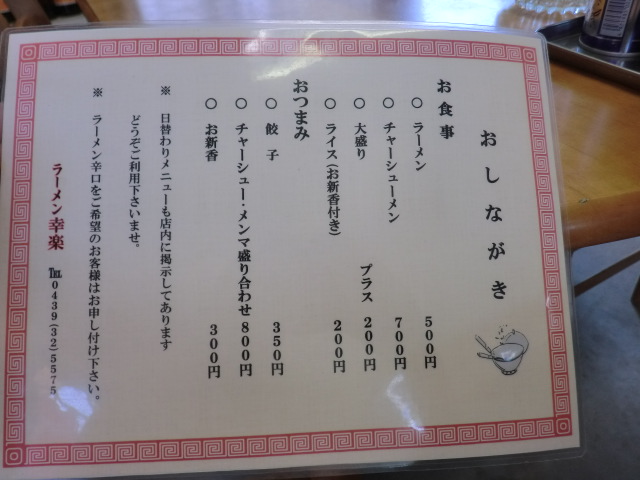 おしながき
お食事
○ ラーメン 500円
○ チャーシューメン 700円
○ 大盛り プラス 200円
○ ライス(お新香付き) 200円
おつまみ
○ 餃子 350円
○ チャーシュー・メンマ盛り合わせ 800円
○ お新香 300円
※ 日替わりメニューも店内に掲示してあります
どうぞご利用下さいませ。
※ ラーメン辛口をご希望のお客様はお申し付け下さい。
ラーメン幸楽 ℡0439(32)5575